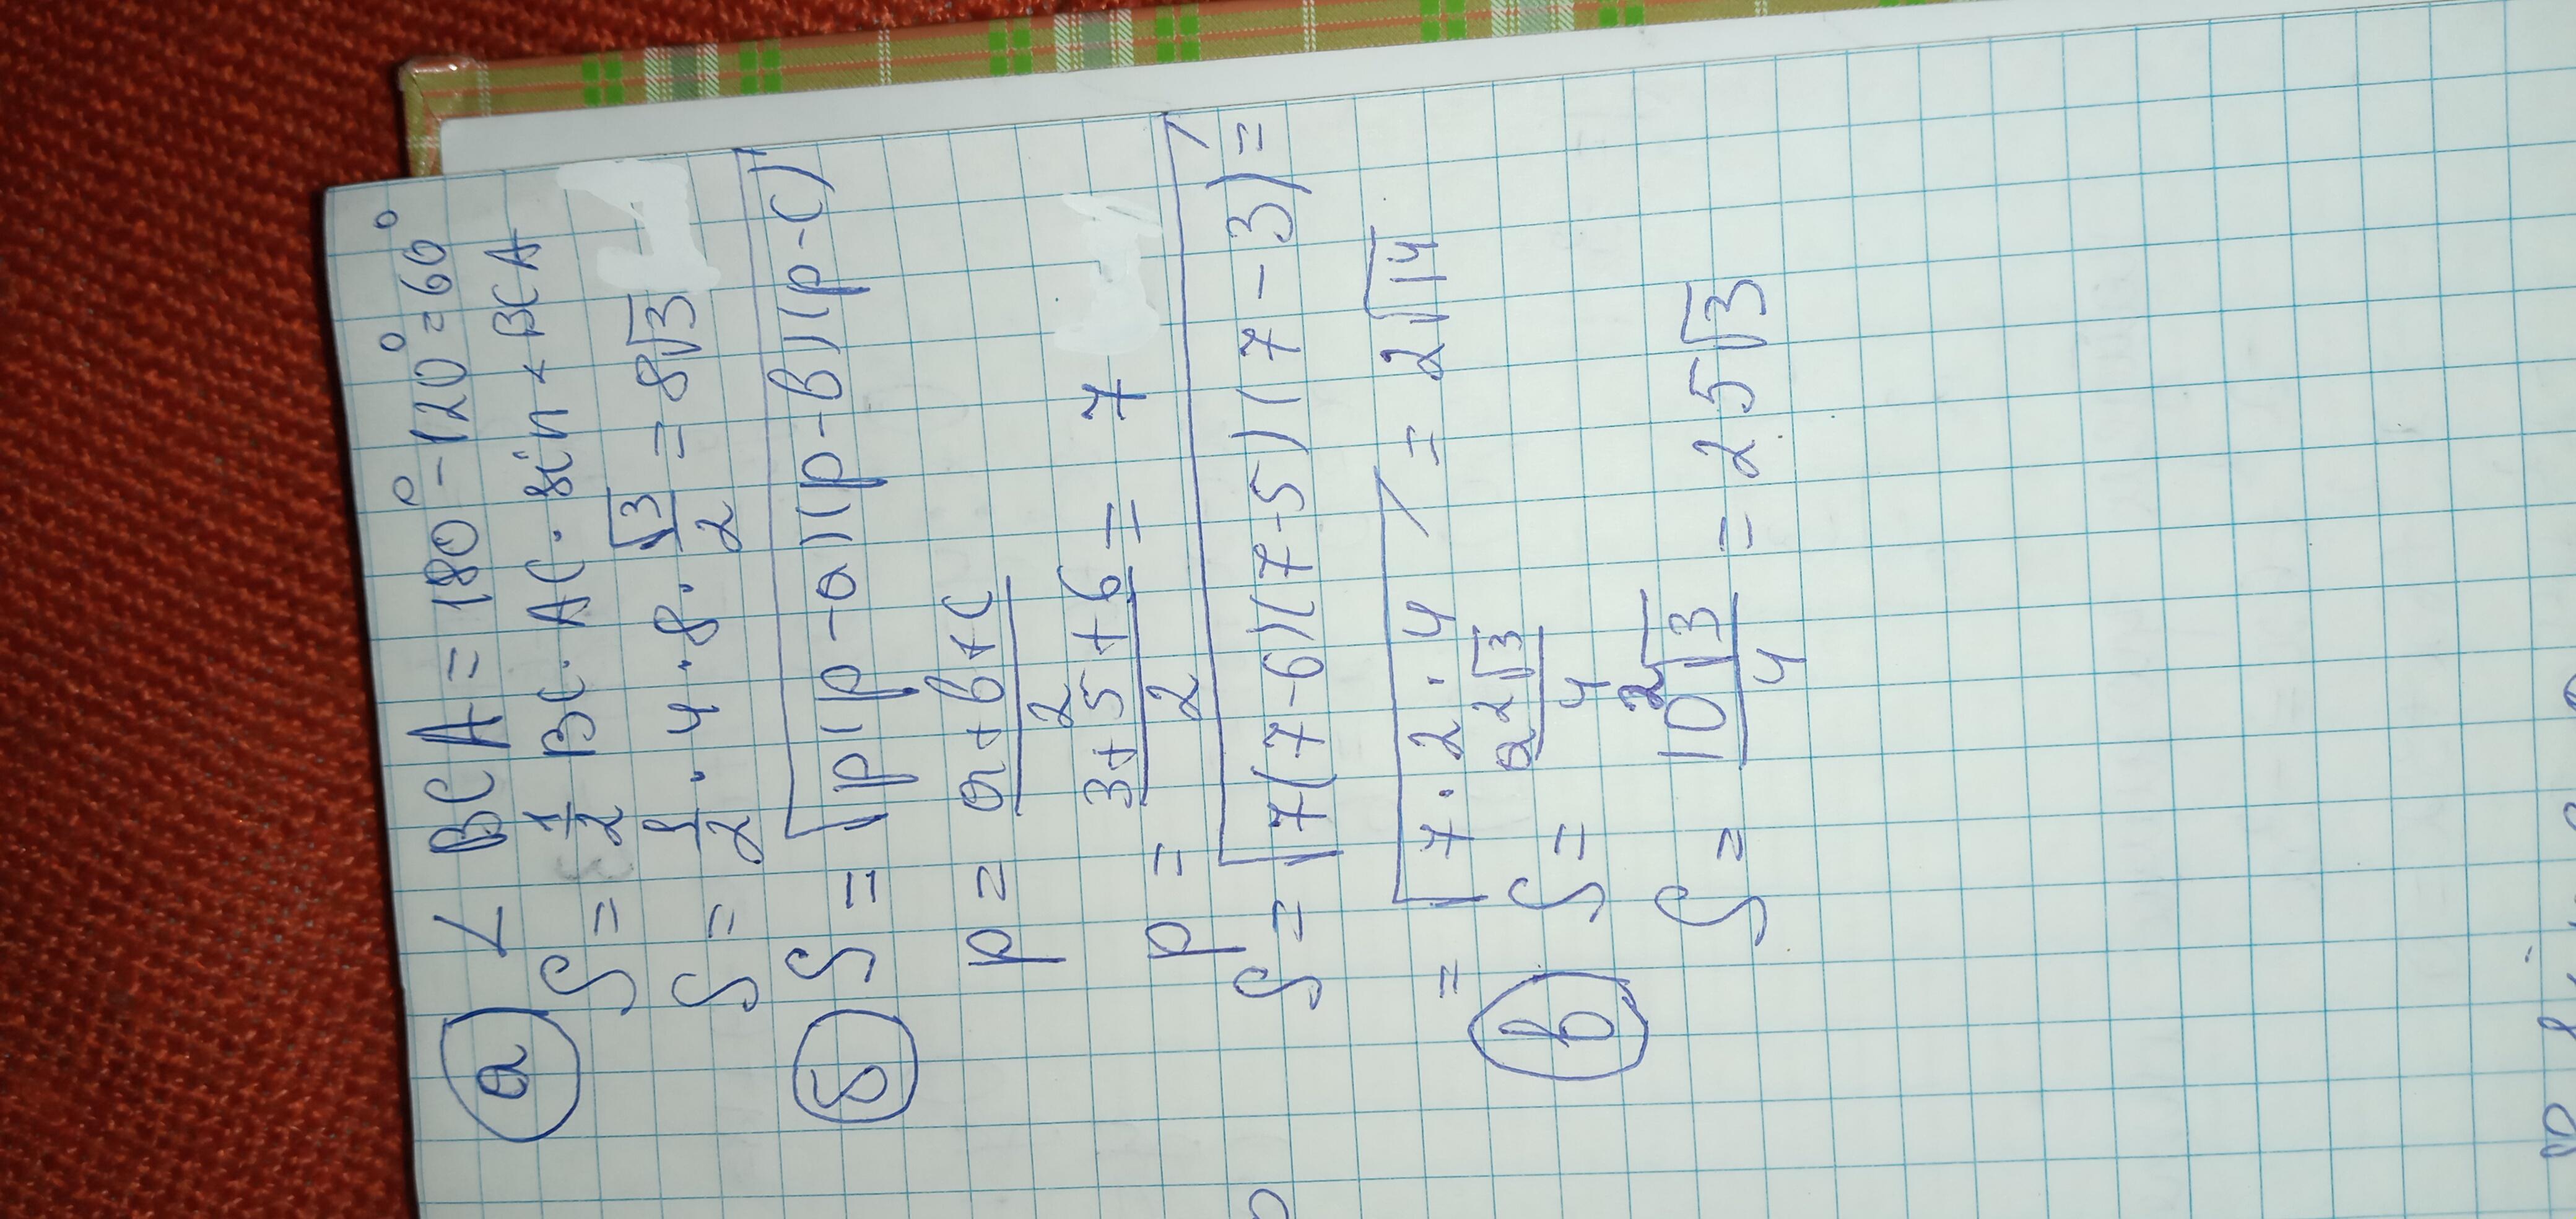 а ∠ BCA = 180° - 120° = 60°
S = 1/2 BC · AC · sin ∠ BCA
S = 1/2 · 4 · 8 · √3/2 = 8√3
б S = √(p(p-a)(p-в)(p-c))
p = (a+в+c)/2
p = (3+5+6)/2 = 7
S = √(7(7-6)(7-5)(7-3)) =
= √(7·2·4) = 2√14
в S = a²√3/4
S = 10²√3/4 = 25√3